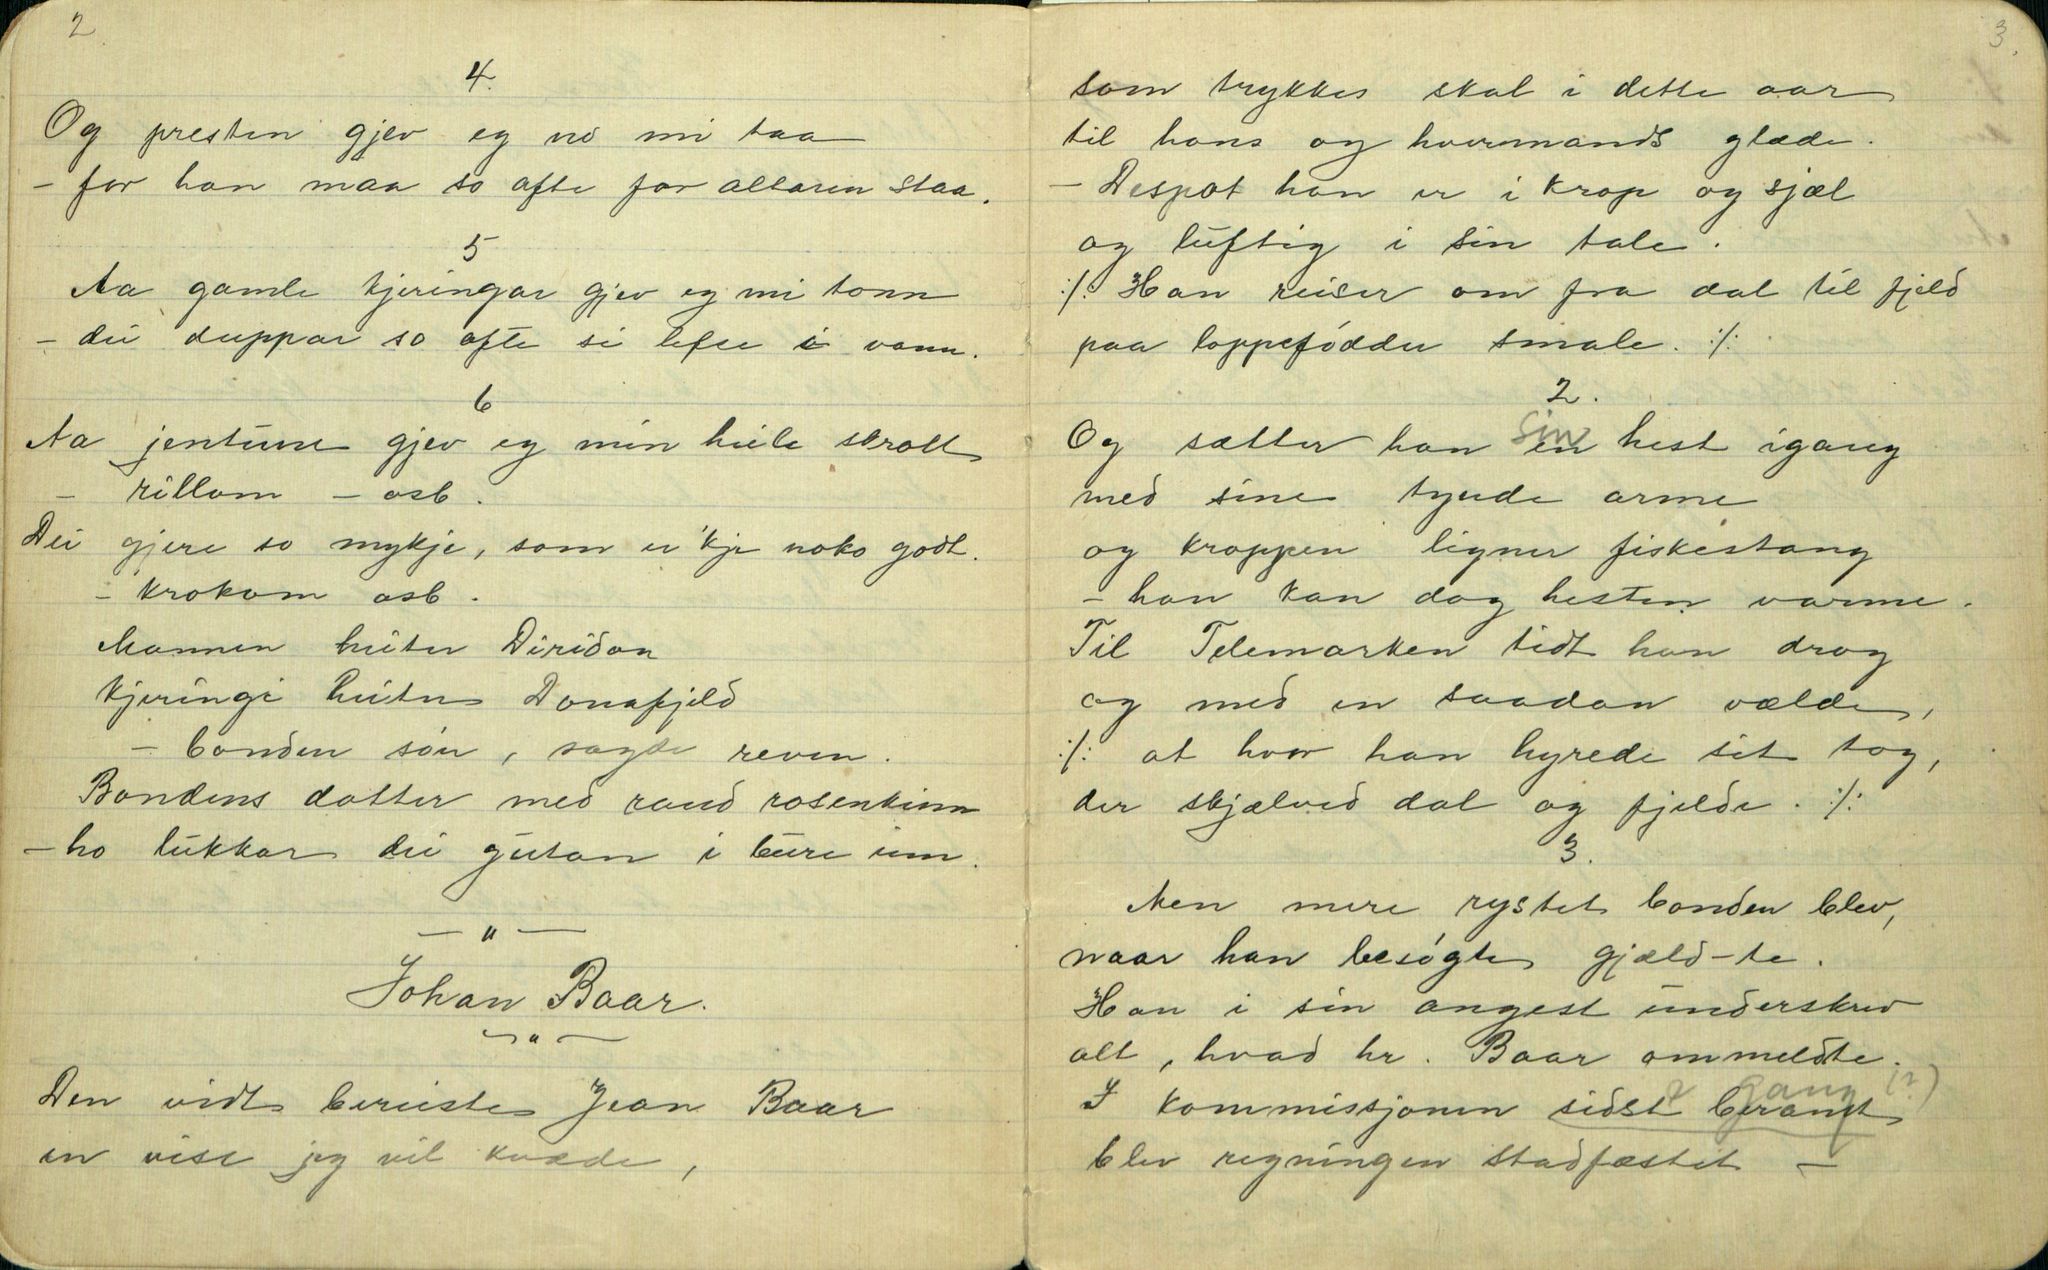 2
4.
Og presten gjev eg no mi taa
- for han maa so ofte for altaren staa.
5
Aa gamle kjeringar gjev eg mi tonn
- dei duppar so ofte si lefse i vann.
6
Aa jentune gjev eg min heile skrott
- rillom - osb.
Dei gjere so mykje, som er 'kje noko godt.
- krokom osb.
Mannen heiter Diridon
Kjeringi heiter Donafjeld
- bonden són, sagde reven.
Bondens datter med raud rosenkinn
- ho lukkar dei gutan i bure inn.
- " -
Johan Baar.
- " -
Den vidt bereiste Jean Baar
en vise jeg vil kvæde,
3.
som trykkes skal i dette aar
til hans og hvermands glæde.
- Despot han er i krop og sjæl
og luftig i sin tale.
:/: Han reiser om fra dal til fjeld
paa loppefódder smale. :/:
2.
Og sætter han en sin hest igang
med sine tynde arme
og kroppen ligner fiskestang
- han kan dog hesten varme.
Til Telemarken tidt han drog
og med en saadan vælde,
:/: at hvor han hyrede sit tog,
der skjælved dal og fjelde. :/:
3.
Men mere rystet bonden blev,
naar han besógte gjæld-te.
Han i sin angest underskrev
alt, hvad hr. Baar ommeldte.
gang (?)
I kommissjonen sidst beramt
blev regningen stadfæstet -